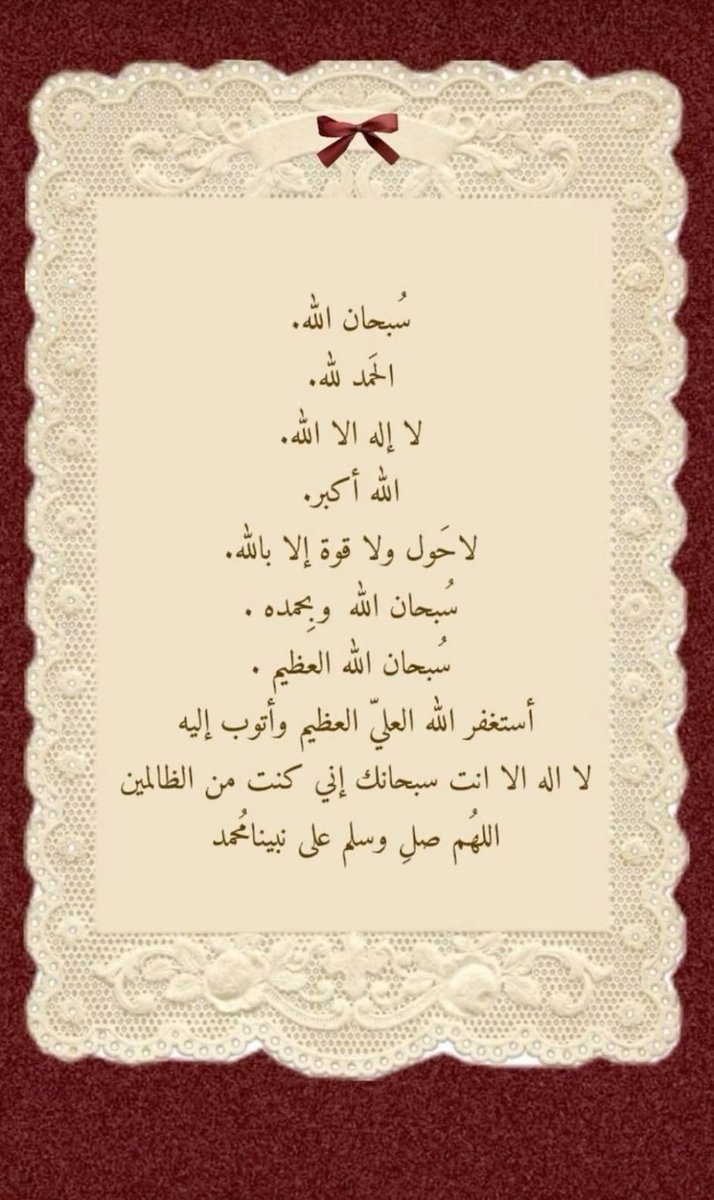 سُبحان الله.
الحَمد لله.
لا إله الا الله.
الله أكبر.
لاحَول ولا قوة إلا بالله.
سُبحان الله وبِحمده .
سُبحان الله العظيم .
أستغفر الله العليّ العظيم وأتوب إليه
لا اله الا انت سبحانك إني كنت من الظالمين
اللهُم صلِ وسلم على نبينامُحمد